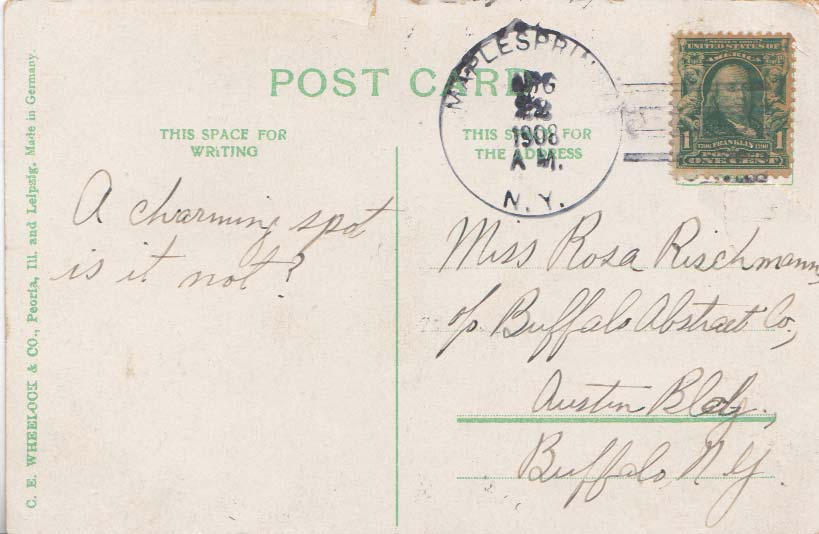 POST CARD
THIS SPACE FOR
WRITING
THIS SPACE FOR
THE ADDRESS
MAPLESPRIN
AUG
22
1908
A M.
N.Y.
UNITED STATES OF
AMERICA
1 FRANKLIN 1
POSTAGE
ONE CENT
A charming spot
is it not?
Miss Rosa Rischmann
c/o Buffalo Abstract Co.,
Austin Bldg.,
Buffalo, N.Y.
C. E. WHEELOCK & CO., Peoria, Ill. and Leipzig. Made in Germany.